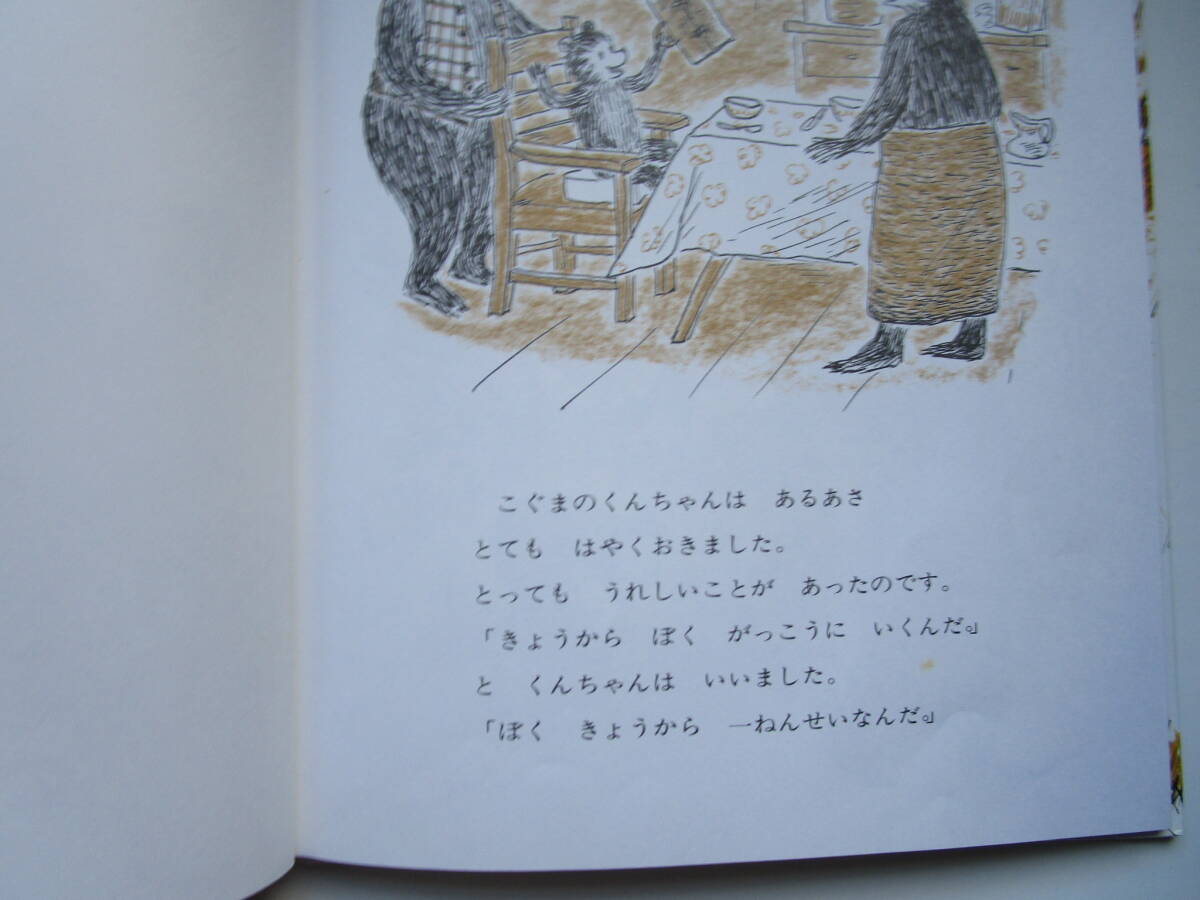 こぐまのくんちゃんは　あるあさ
とても　はやくおきました。
とっても　うれしいことが　あったのです。
「きょうから　ぼく　がっこうに　いくんだ。」
と　くんちゃんは　いいました。
「ぼく　きょうから　一ねんせいなんだ。」